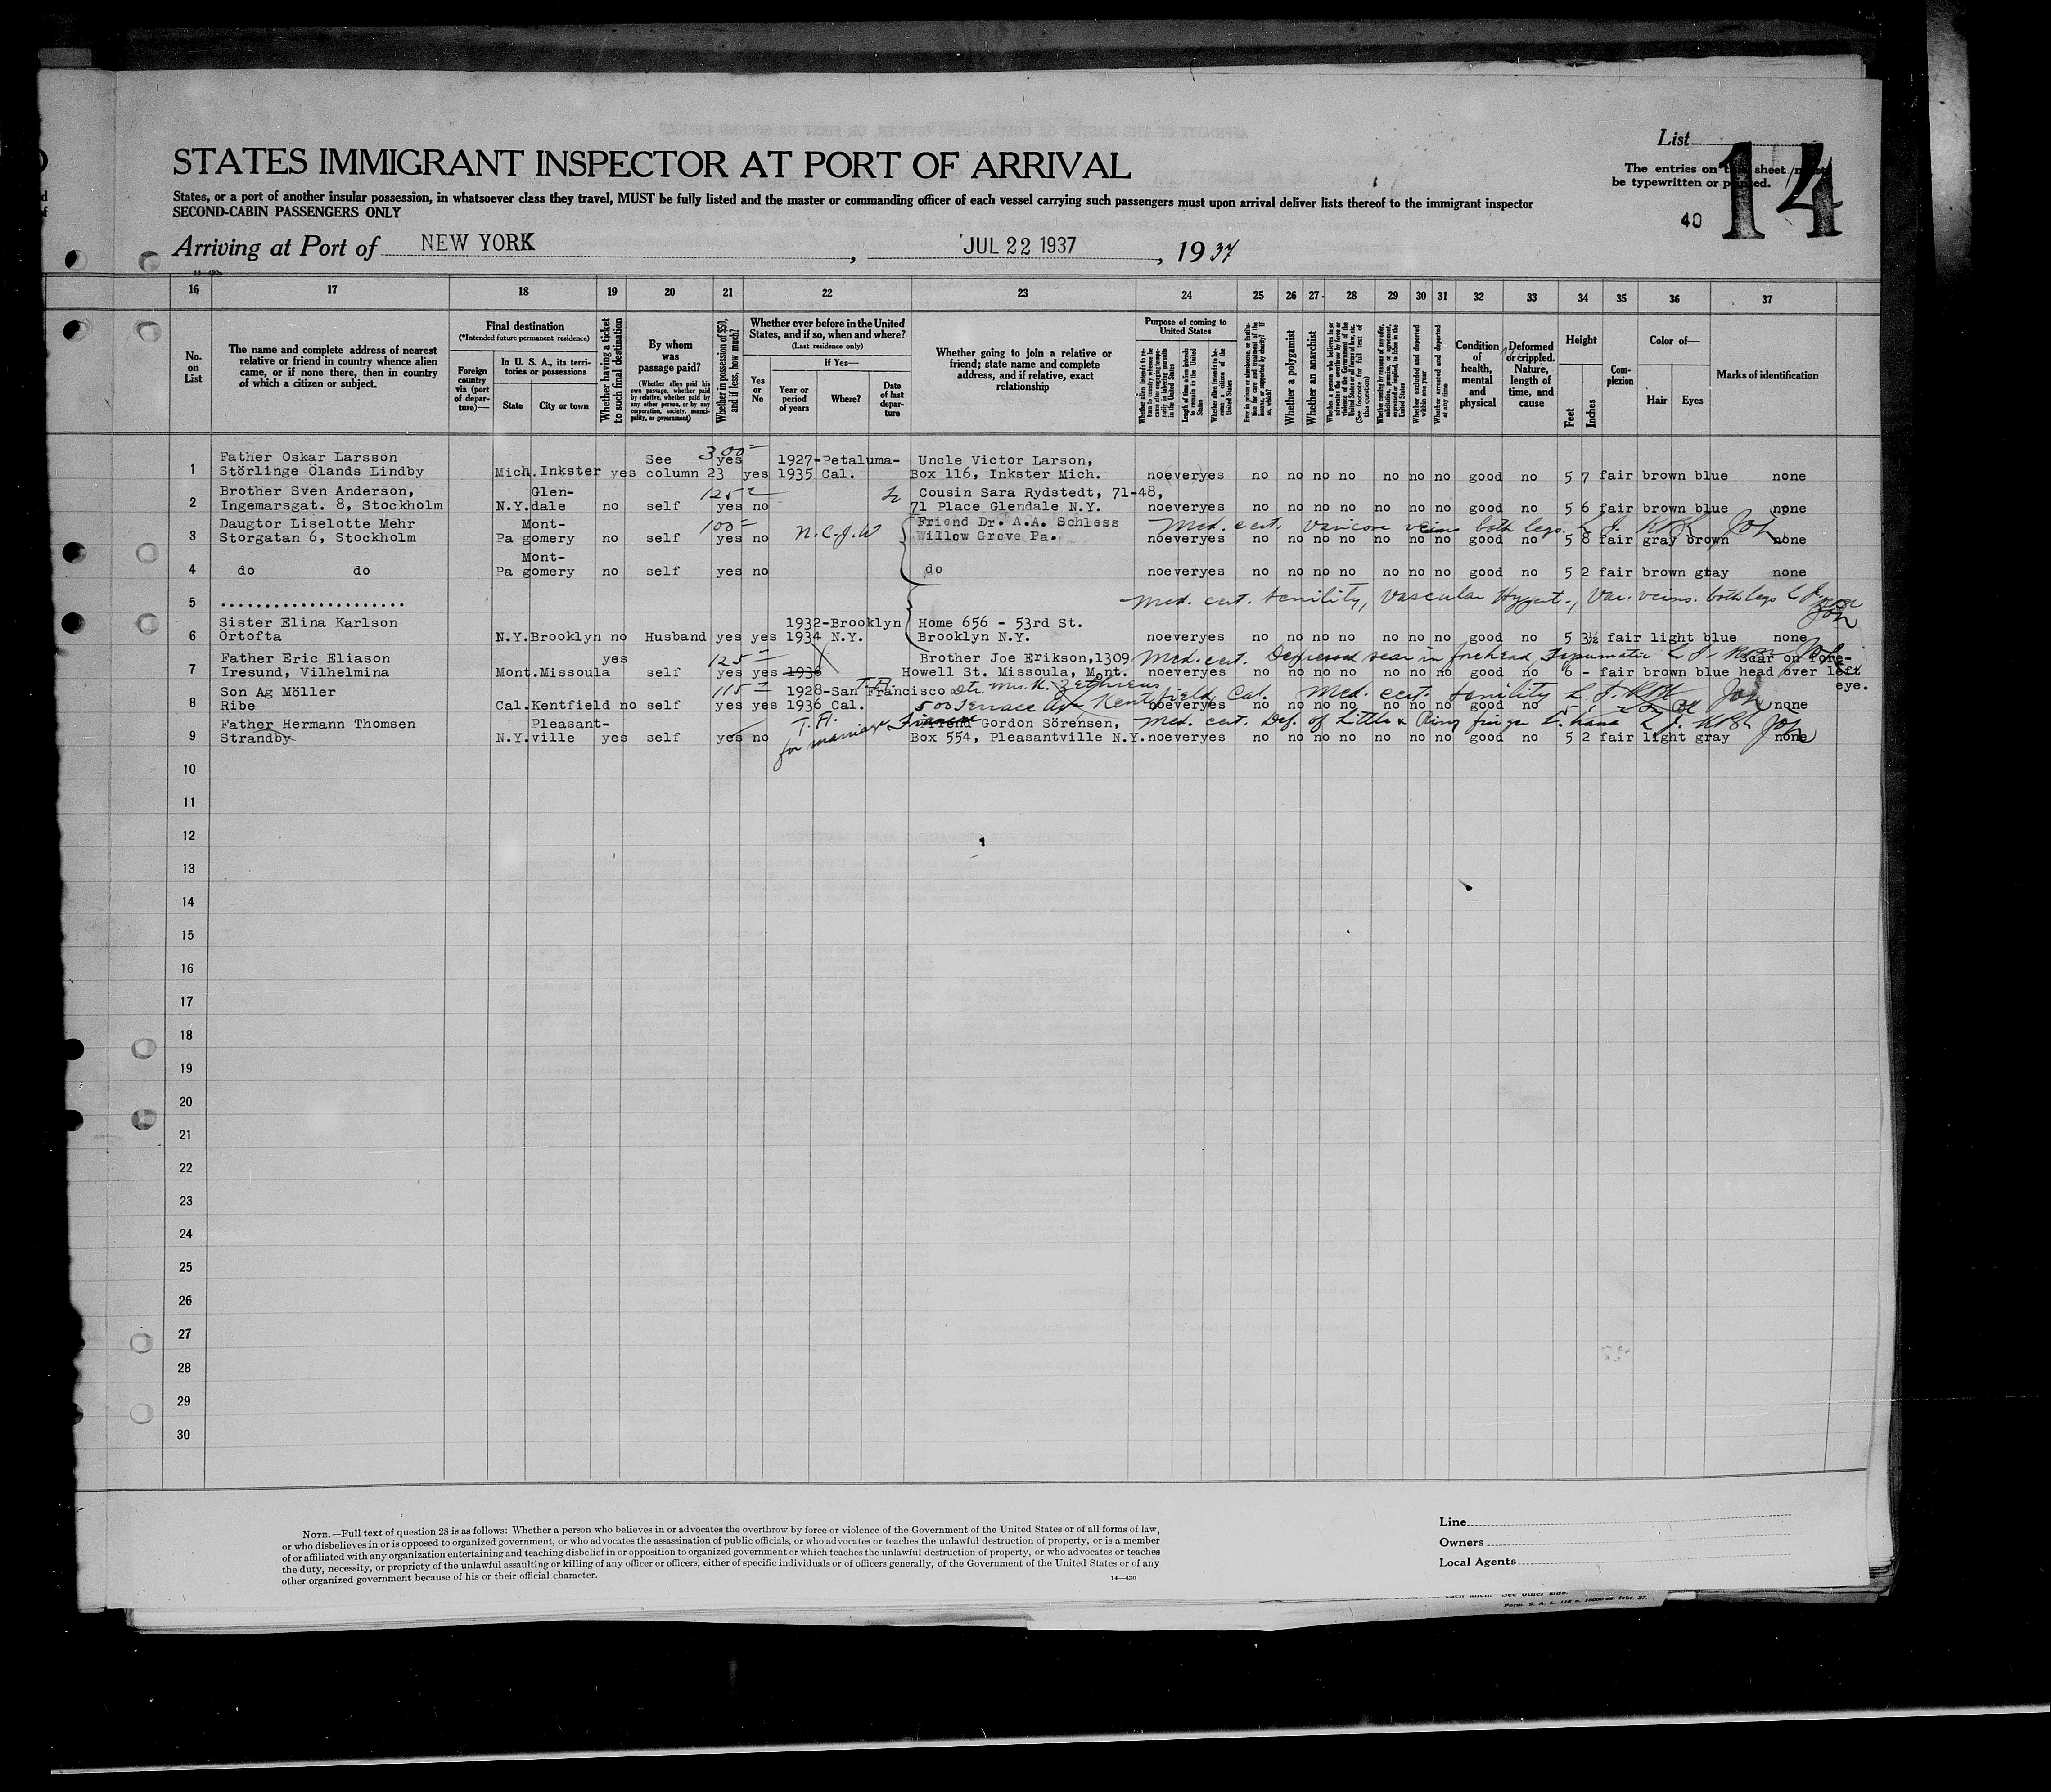 List
14
The entries on this sheet must
be typewritten or printed.
40
STATES IMMIGRANT INSPECTOR AT PORT OF ARRIVAL
States, or a port of another insular possession, in whatsoever class they travel, MUST be fully listed and the master or commanding officer of each vessel carrying such passengers must upon arrival deliver lists thereof to the immigrant inspector
SECOND-CABIN PASSENGERS ONLY
Arriving at Port of NEW YORK, JUL 22 1937, 1937
16 17 18 19 20 21 22 23 24 25 26 27 28 29 30 31 32 33 34 35 36 37
No. on List
The name and complete address of nearest relative or friend in country whence alien came, or if none there, then in country of which a citizen or subject.
Final destination
(*Intended future permanent residence)
Foreign country via (port of departure)—
In U. S. A., its territories or possessions
State
City or town
Whether having a ticket to such final destination
By whom was passage paid?
(Whether alien paid his own passage, whether paid by relative, whether paid by any other person, or by any corporation, society, municipality, or government)
Whether in possession of $50, and if less, how much?
Whether ever before in the United States, and if so, when and where?
(Last residence only)
If Yes—
Yes or No
Year or period of years
Where?
Date of last departure
Whether going to join a relative or friend; state name and complete address, and if relative, exact relationship
Purpose of coming to United States
Length of time alien intends to remain in the United States
Whether alien intends to become a citizen of the United States
Whether a polygamist
Whether an anarchist
Whether arrested and deported at any time
Condition of health, mental and physical
Deformed or crippled. Nature, length of time, and cause
Height
Feet
Inches
Complexion
Color of—
Hair
Eyes
Marks of identification
Father Oskar Larsson See 300 1927-Petaluma- Uncle Victor Larson,
1 Störlinge Ölands Lindby Mich. Inkster yes column 23 yes yes 1935 Cal. Box 116, Inkster Mich. no ever yes no no no no no no no good no 5 7 fair brown blue none
Brother Sven Anderson, Glen- 125 Cousin Sara Rydstedt, 71-48,
2 Ingemarsgat. 8, Stockholm N.Y. dale no self yes no 71 Place Glendale N.Y. no ever yes no no no no no no no good no 5 6 fair brown blue none
Daugtor Liselotte Mehr Mont- 100 N.C.J.W Friend Dr. A.A. Schless Med. cert. varicose veins both legs.
3 Storgatan 6, Stockholm Pa gomery no self yes no Willow Grove Pa. no ever yes no no no no no no no good no 5 8 fair gray brown none
Mont-
4 do do Pa gomery no self yes no do no ever yes no no no no no no no good no 5 2 fair brown gray none
5 ..................... Med. cert. senility, vascular Hypert., Var. veins. both legs
Sister Elina Karlson 1932-Brooklyn Home 656 - 53rd St.
6 Örtofta N.Y. Brooklyn no Husband yes yes 1934 N.Y. Brooklyn N.Y. no ever yes no no no no no no no good no 5 3½ fair light blue none
Father Eric Eliason yes 125 Brother Joe Erikson, 1309 Med. cert. Depressed scar in forehead, Scar on fore-
7 Iresund, Vilhelmina Mont. Missoula self yes yes 1936 Howell St. Missoula, Mont. no ever yes no no no no no no no good no 6 - fair brown blue head over left
eye.
Son Ag Möller 115 1928-San Francisco Med. cert. senility
8 Ribe Cal. Kentfield no self yes yes 1936 Cal. 500 Terrace Ave Kentfield, Cal. no ever yes no no no no no no no good no none
Father Hermann Thomsen Pleasant- T.H. Friend Gordon Sörensen, Med. cert. Def. of Little & Ring finger L. hand
9 Strandby N.Y. ville yes self yes no for marriage Box 554, Pleasantville N.Y. no ever yes no no no no no no no good no 5 2 fair light gray none
10
11
12
13
14
15
16
17
18
19
20
21
22
23
24
25
26
27
28
29
30
NOTE.—Full text of question 28 is as follows: Whether a person who believes in or advocates the overthrow by force or violence of the Government of the United States or of all forms of law,
or who disbelieves in or is opposed to organized government, or who advocates the assassination of public officials, or who advocates or teaches the unlawful destruction of property, or is a member
of or affiliated with any organization entertaining and teaching disbelief in or opposition to organized government or which teaches the unlawful destruction of property, or who advocates or teaches
the duty, necessity, or propriety of the unlawful assaulting or killing of any officer or officers, either of specific individuals or of officers generally, of the Government of the United States or of any
other organized government because of his or their official character.
14—430
Line
Owners
Local Agents